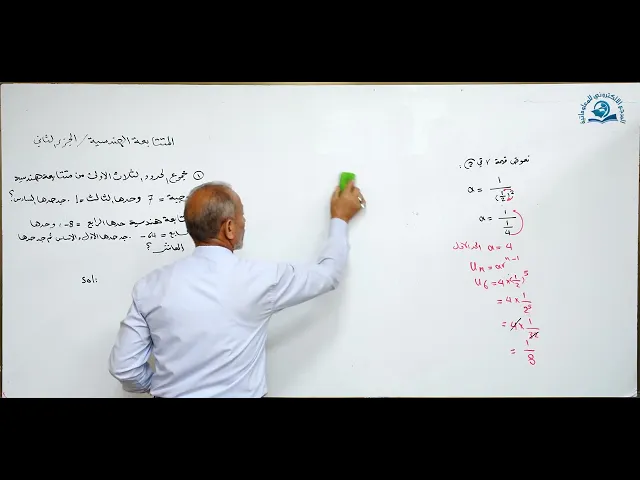 المتتابعة الهندسية / الجزء الثاني
① مجموع الحدود الثلاث الأولى من متتابعة هندسية
= 7 وحدها الثالث = 1. جد حدها السادس؟
هندسية حدها الرابع = 8-، وحدها
= 64- . جد حدها الأول، الأساس ثم جد حدها
العاشر؟
Sol:
نعوض قيمة r في
a = 1/(1/2)²
a = 1/(1/4)
a = 4 الحد الأول
Un = ar^n-1
U6 = 4×(1/2)^5
= 4 × 1/2^5
= 4 × 1/32
= 1/8